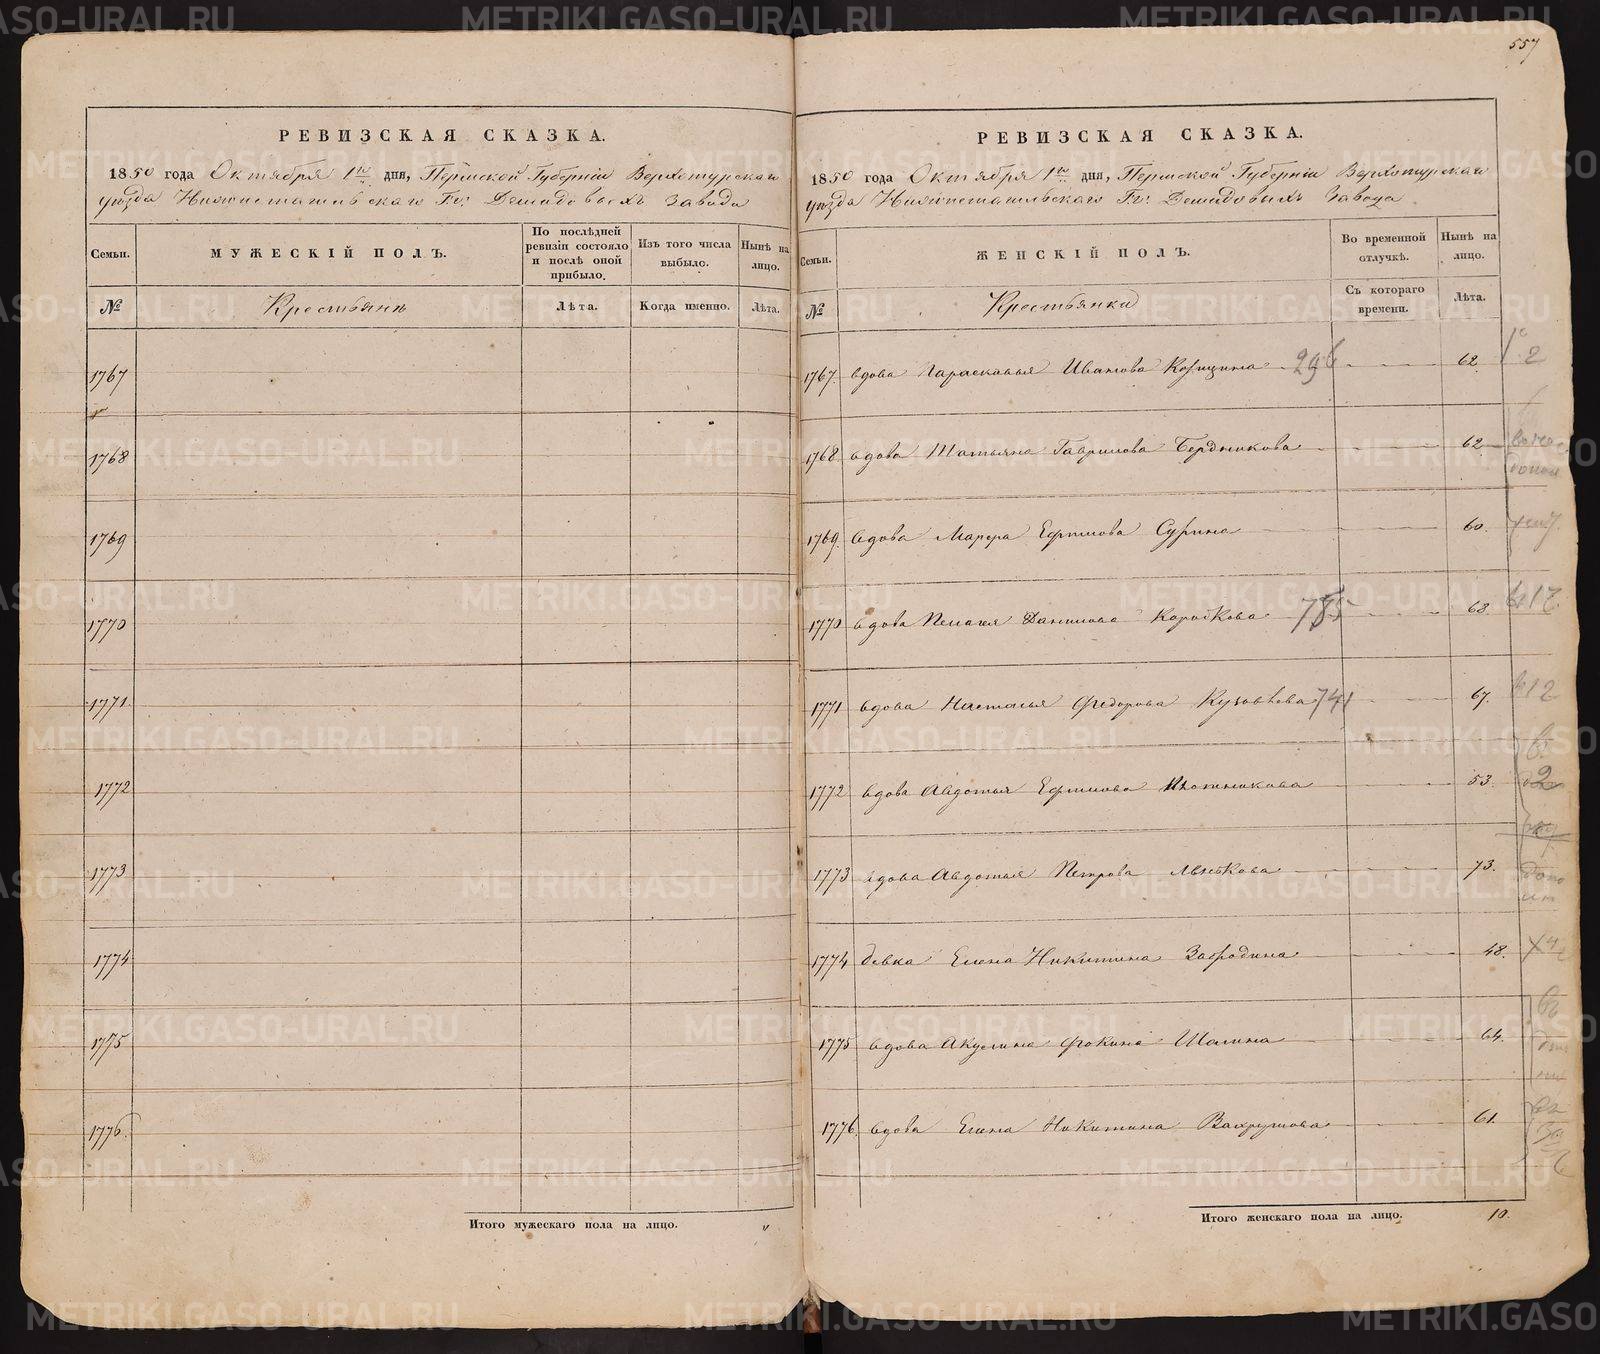 557
РЕВИЗСКАЯ СКАЗКА.
1850 года Октября 1го дня, Пермской Губерніи Верхотурскаго
уѣзда Нижнетагильскаго Гг. Демидовыхъ завода
Семьи. МУЖЕСКІЙ ПОЛЪ. По послѣдней ревизіи состояло и послѣ оной прибыло. Изъ того числа выбыло. Нынѣ на лицо.
№ Крестьяне Лѣта. Когда именно. Лѣта.
1767
1768
1769
1770
1771.
1772
1773
1774
1775
1776.
Итого мужескаго пола на лицо. "
РЕВИЗСКАЯ СКАЗКА.
1850 года Октября 1го дня, Пермской Губерніи Верхотурскаго
уѣзда Нижнетагильскаго Гг. Демидовыхъ завода
Семьи. ЖЕНСКІЙ ПОЛЪ. Во временной отлучкѣ. Нынѣ на лицо.
№ Крестьянки Съ котораго времени. Лѣта.
1767. вдова Парасковья Иванова 296 62
1768. вдова Татьяна Гаврилова Бердникова 62
1769. вдова Марѳа Ефимова Сурина 60.
1770 вдова Пелагея Данилова Коробкова 785 68
1771 вдова Наталья Федорова 741 67.
1772 вдова Авдотья Ефимова Плотникова 53.
1773 вдова Авдотья Петрова 73.
1774 девка Елена Никитина Забродина 48.
1775 вдова Акулина Фокина Шалина 64.
1776. вдова Елена Никитина Вахрушова 61.
Итого женскаго пола на лицо. 10.
METRIKI.GASO-URAL.RU